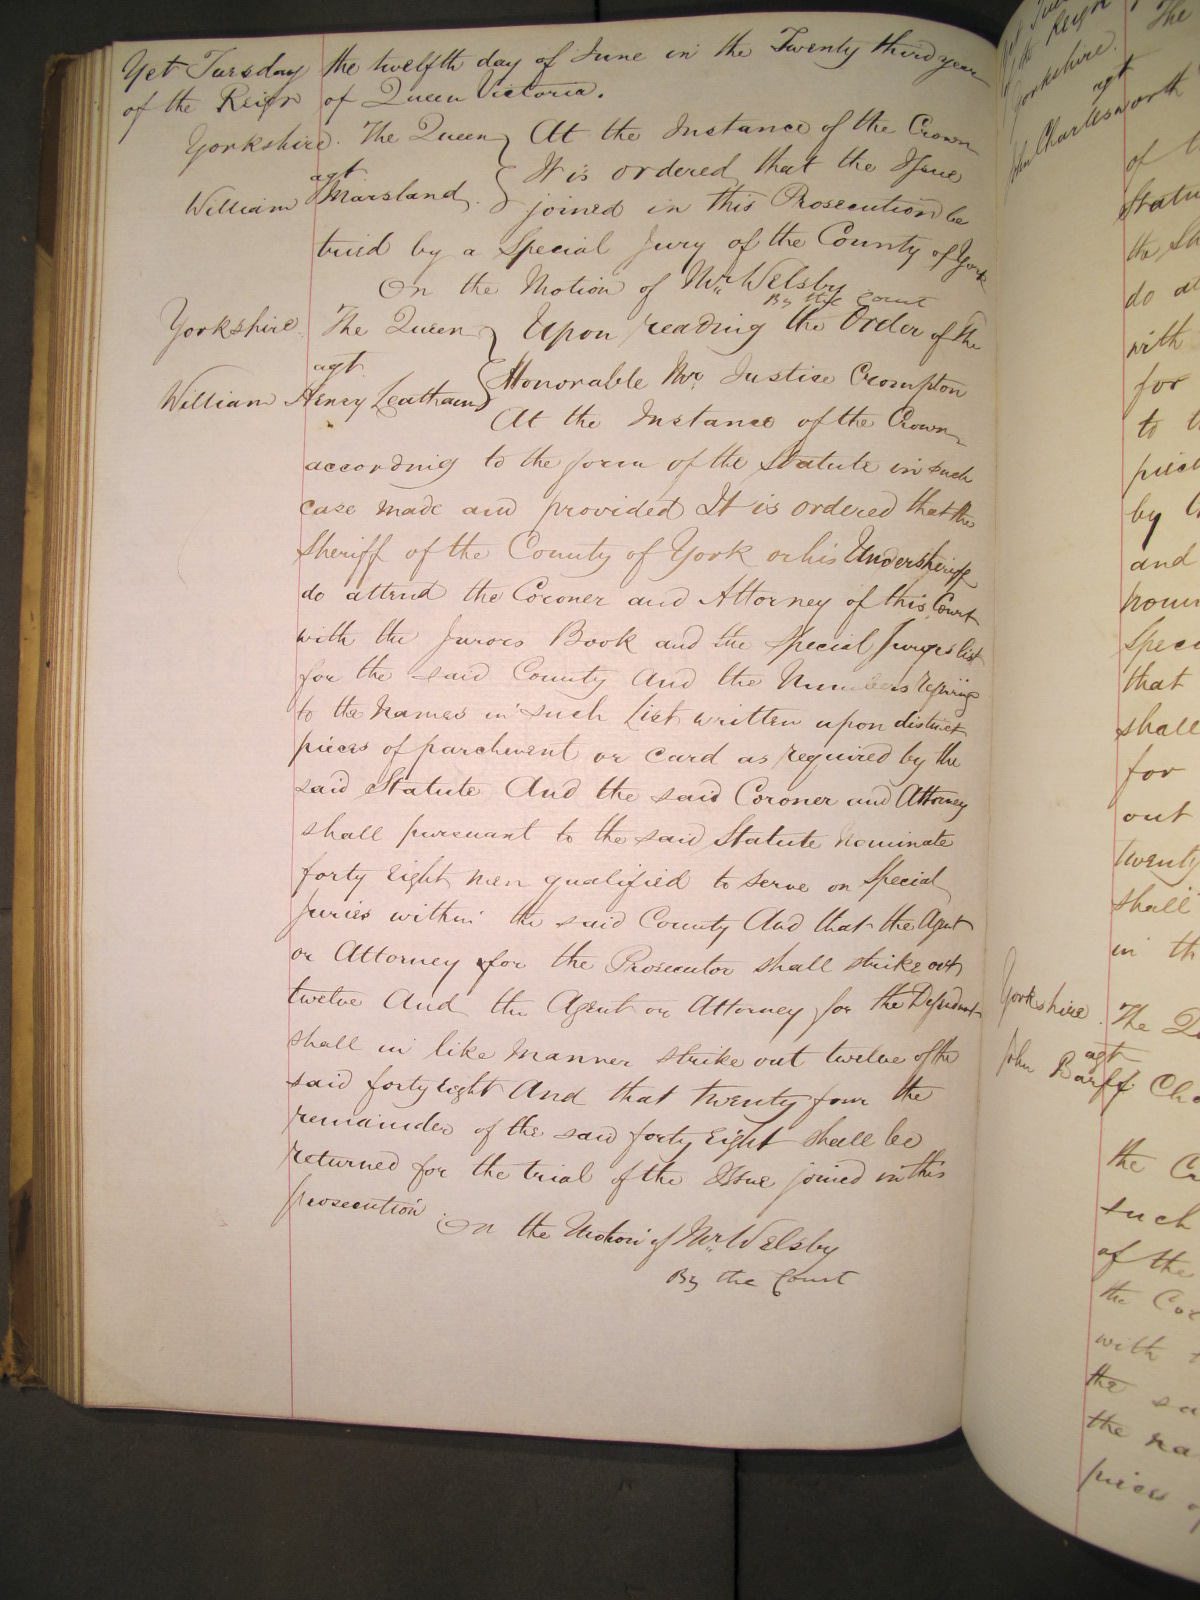 Yet Tuesday the twelfth day of June in the Twenty third year
of the Reign of Queen Victoria.
Yorkshire. The Queen } At the Instance of the Crown
agt It is ordered that the Issue
William Marsland. joined in this Prosecution be
tried by a Special Jury of the County of York
On the Motion of Mr. Welsby
By the Court
Yorkshire. The Queen } Upon reading the Order of the
agt Honorable Mr. Justice Crompton
William Henry Leatham
At the Instance of the Crown
according to the form of the Statute in such
case made and provided It is ordered that the
Sheriff of the County of York or his Undersheriff
do attend the Coroner and Attorney of this Court
with the Jurors Book and the Special Jurors list
for the said County And the Numbers refering
to the Names in such List written upon distinct
pieces of parchment or card as required by the
said Statute And the said Coroner and Attorney
shall pursuant to the said Statute Nominate
forty eight men qualified to serve on Special
Juries within the said County And that the Agent
or Attorney for the Prosecutor shall strike out
twelve And the Agent or Attorney for the Defendant
shall in like Manner strike out twelve of the
said forty eight And that twenty four the
remainder of the said forty eight shall be
returned for the trial of the Issue joined in this
prosecution.
On the Motion of Mr. Welsby
By the Court
the Reign
Yorkshire. The
agt
John Charlesworth
of
the
do
with
for
to
by
and
that
shall
for
out
twenty
shall
in
Yorkshire. The
agt
John Barff
the
such
of the
the
with
the
the
pieces